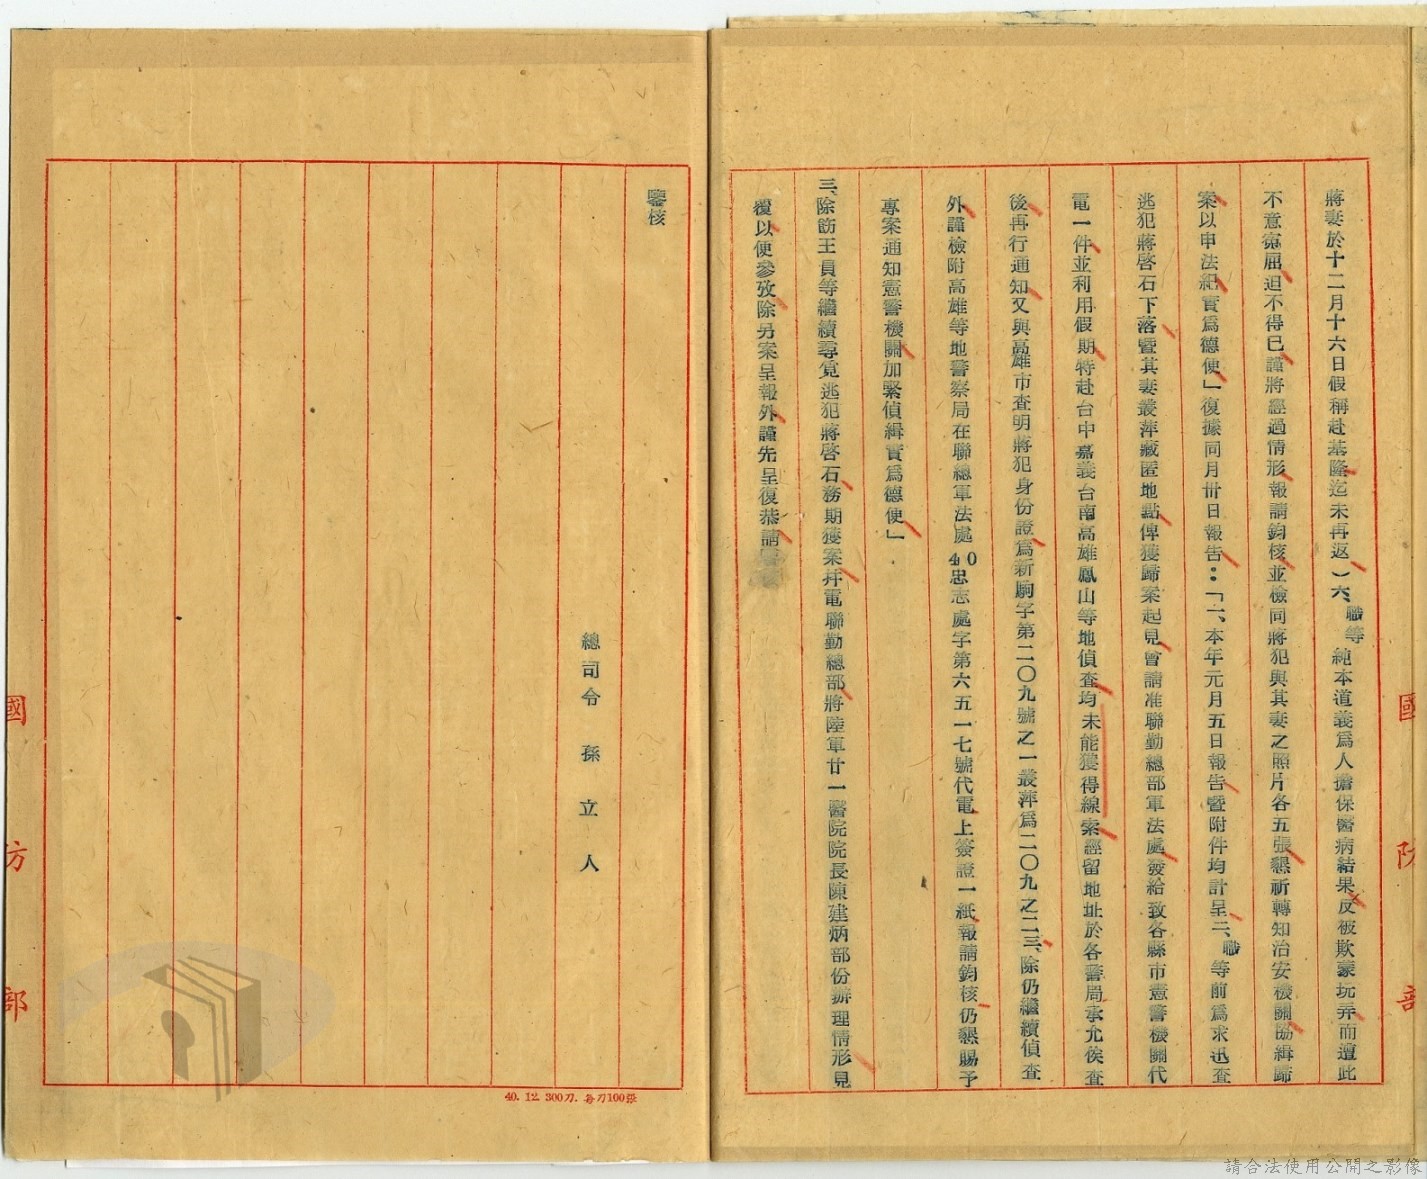 蔣妻於十二月十六日假稱赴基隆迄未再返)六、職等純本道義爲人擔保醫病結果反被欺蒙玩弄而遭此
不意寃屈迫不得已謹將經過情形報請鈞核並檢同蔣犯與其妻之照片各五張懇祈轉知治安機關協緝歸
案以申法紀實爲德便」復據同月卅日報告:「一、本年元月五日報告暨附件均計呈二、職等前爲求迅查
逃犯蔣啓石下落暨其妻叢萍藏匿地點俾獲歸案起見曾請准聯勤總部軍法處發給致各縣市憲警機關代
電一件並利用假期特赴台中嘉義台南高雄鳳山等地偵查均未能獲得線索經留地址於各警局承允俟查
後再行通知又與高雄市查明蔣犯身份證爲新駒字第二〇九號之一叢萍爲二〇九之二三、除仍繼續偵查
外謹檢附高雄等地警察局在聯總軍法處40忠志處字第六五一七號代電上簽證一紙報請鈞核仍懇賜予
專案通知憲警機關加緊偵緝實爲德便」
三、除飭王員等繼續尋覓逃犯蔣啓石務期獲案幷電聯勤總部將陸軍廿一醫院院長陳建炳部份辦理情形見
覆以便參攷除另案呈報外謹先呈復恭請
國防部
鑒核
總司令 孫立人
國防部
40. 12. 300刀. 每刀100張
請合法使用公開之影像